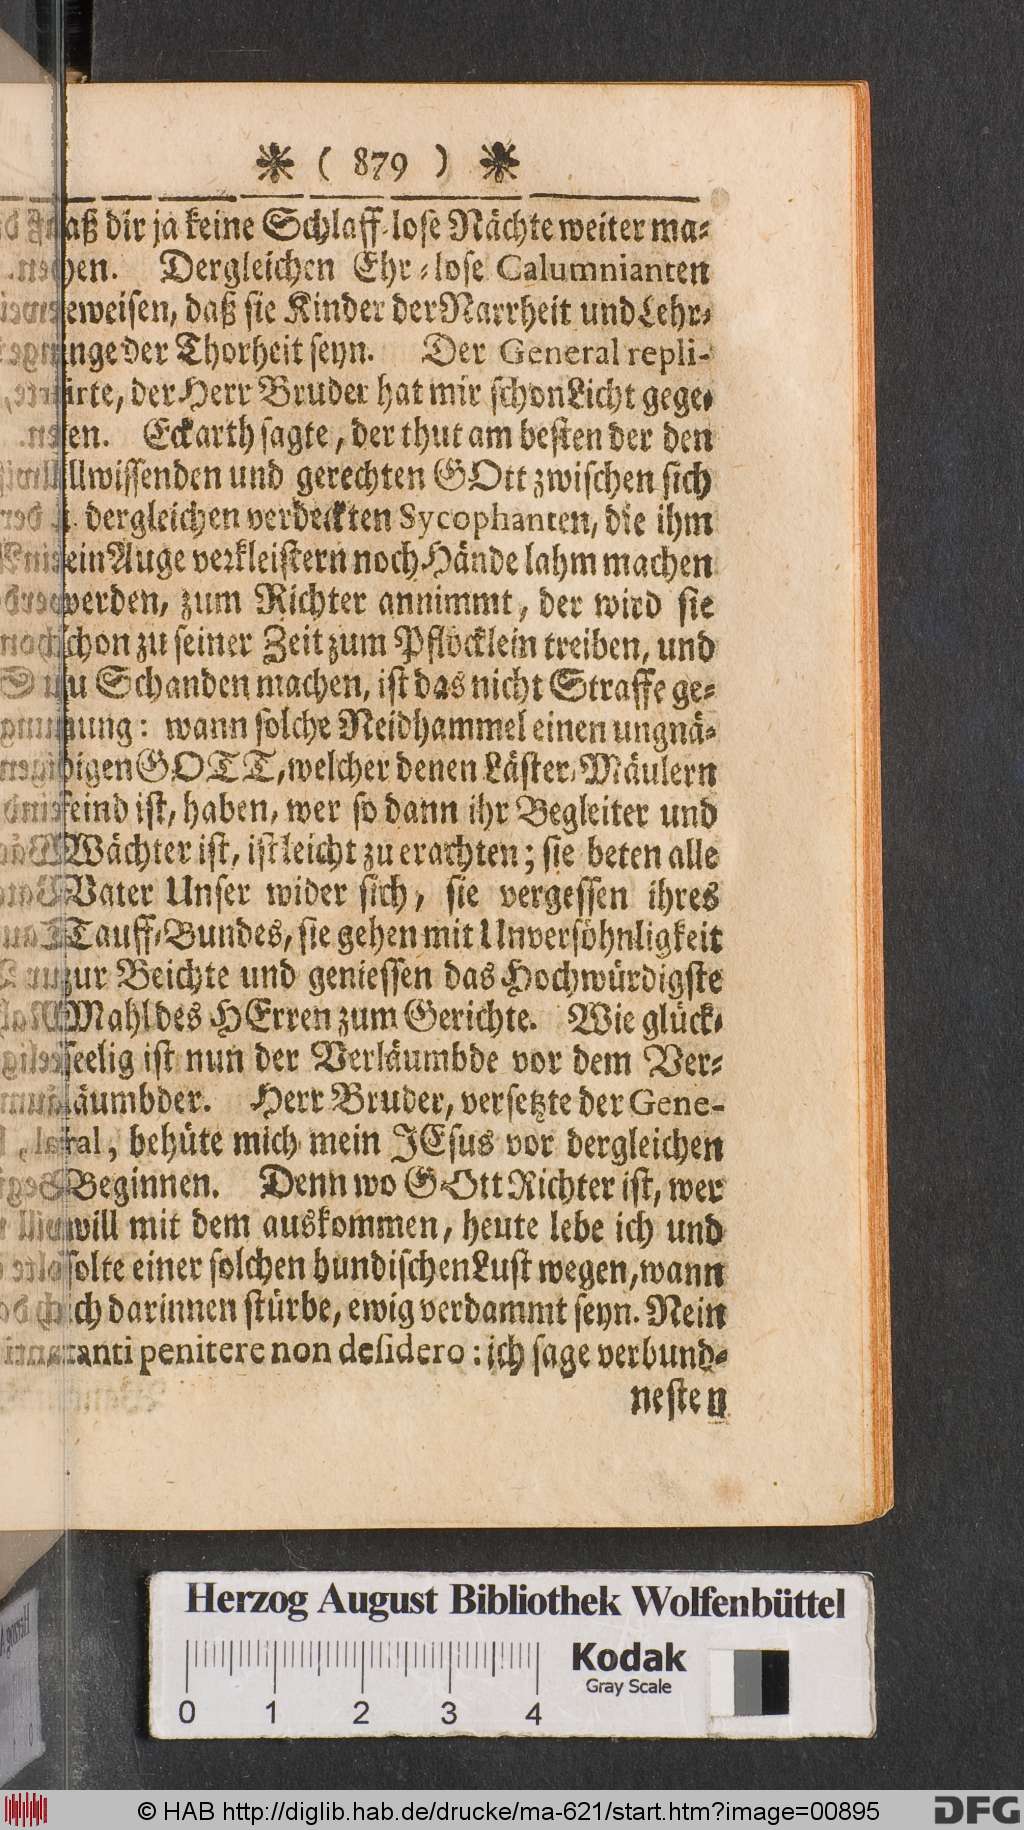 ( 879 )
laß dir ja keine Schlaff-lose Nächte weiter ma-
chen. Dergleichen Ehr-lose Calumnianten
beweisen, daß sie Kinder der Narrheit und Lehr-
junge der Thorheit seyn. Der General repli-
cirte, der Herr Bruder hat mir schon Licht gege-
ben. Eckarth sagte, der thut am besten der den
allwissenden und gerechten GOtt zwischen sich
u. dergleichen verdeckten Sycophanten, die ihm
kein Auge verkleistern noch Hände lahm machen
werden, zum Richter annimmt, der wird sie
schon zu seiner Zeit zum Pflöcklein treiben, und
zu Schanden machen, ist das nicht Straffe ge-
nung: wann solche Neidhammel einen ungnä-
digen GOTT, welcher denen Läster-Mäulern
feind ist, haben, wer so dann ihr Begleiter und
Wächter ist, ist leicht zu erachten; sie beten alle
Vater Unser wider sich, sie vergessen ihres
Tauff-Bundes, sie gehen mit Unversöhnligkeit
zur Beichte und geniessen das Hochwürdigste
Mahl des HErren zum Gerichte. Wie glück-
seelig ist nun der Verläumbde vor dem Ver-
läumbder. Herr Bruder, versetzte der Gene-
ral, behüte mich mein JEsus vor dergleichen
Beginnen. Denn wo GOtt Richter ist, wer
will mit dem auskommen, heute lebe ich und
solte einer solchen hundischen Lust wegen, wann
ich darinnen stürbe, ewig verdammt seyn. Nein
tanti penitere non desidero: ich sage verbund-
nesten
Herzog August Bibliothek Wolfenbüttel
Kodak
Gray Scale
0 1 2 3 4
© HAB http://diglib.hab.de/drucke/ma-621/start.htm?image=00895
DFG